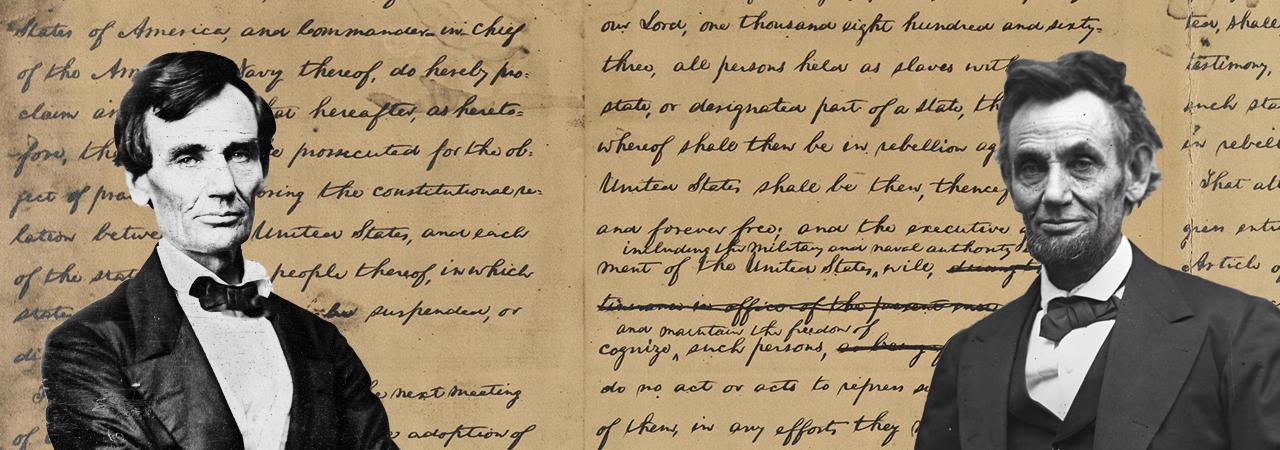 States of America, and Commander-in-Chief
of the Am Navy thereof, do hereby pro-
claim an hat hereafter, as hereto-
fore, th e prossecuted for the ob-
ject of prac oring the constitutional re-
lation betwe United States, and each
of the stat people thereof, in which
states be suspended, or
di
e next meeting
of e adoption of
our Lord, one thousand eight hundred and sixty-
three, all persons held as slaves with
state, or designated part of a state, th
whereof shall then be in rebellion ag
United States shall be then, thence
and forever free; and the executive
including the military and naval authority
ment of the United States, will,
tinuance in office of the present
and maintain the freedom of
cognize, such persons,
do no act or acts to repress s
of them, in any efforts they
ted, shall
testimony,
such sta
in rebell
That att
gress enti
Article o